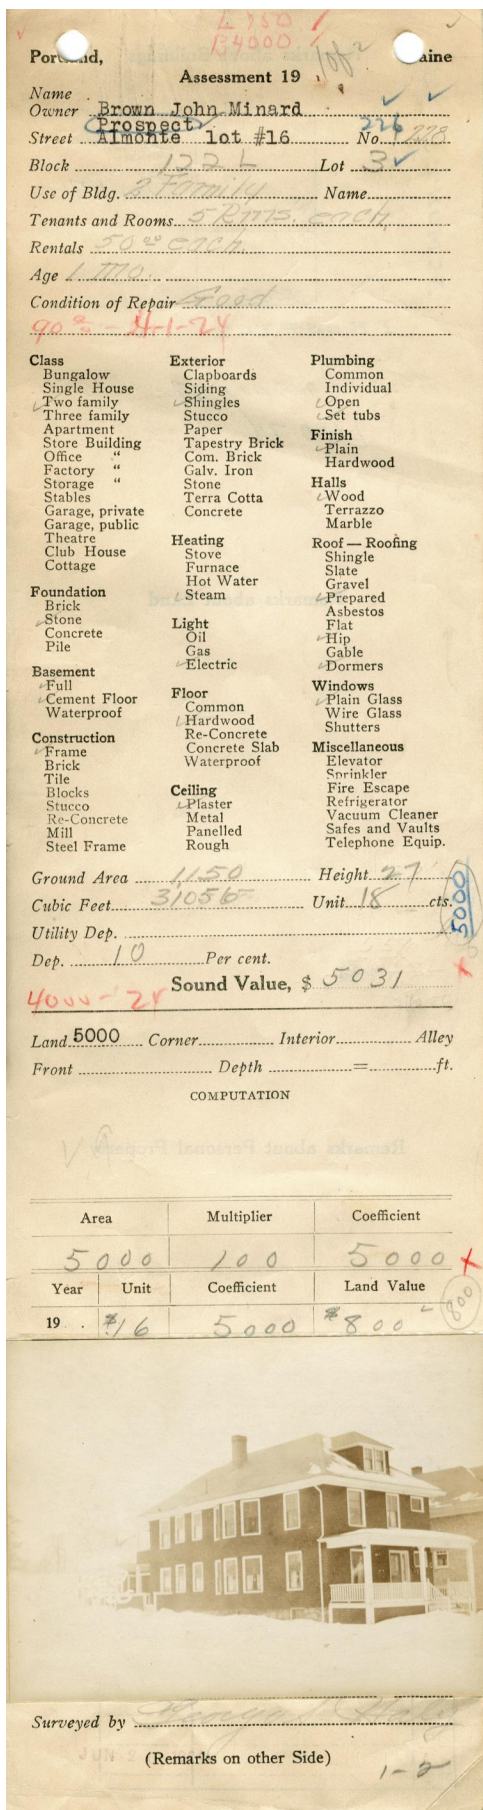 L 750 /
B4000 /
1 of 2
Portland, Maine
Assessment 19
Name
Owner Brown John Minard
Prospect 226
Street Almonte lot #16 No. 228
Block 122 L Lot 3
Use of Bldg. 2 Family Name
Tenants and Rooms 5 Rms. each
Rentals 50 00 each
Age 1 mo.
Condition of Repair Good
90 % - 4-1-24
Class
Bungalow
Single House
Two family
Three family
Apartment
Store Building
Office "
Factory "
Storage "
Stables
Garage, private
Garage, public
Theatre
Club House
Cottage
Foundation
Brick
Stone
Concrete
Pile
Basement
Full
Cement Floor
Waterproof
Construction
Frame
Brick
Tile
Blocks
Stucco
Re-Concrete
Mill
Steel Frame
Exterior
Clapboards
Siding
Shingles
Stucco
Paper
Tapestry Brick
Com. Brick
Galv. Iron
Stone
Terra Cotta
Concrete
Heating
Stove
Furnace
Hot Water
Steam
Light
Oil
Gas
Electric
Floor
Common
Hardwood
Re-Concrete
Concrete Slab
Waterproof
Ceiling
Plaster
Metal
Panelled
Rough
Plumbing
Common
Individual
Open
Set tubs
Finish
Plain
Hardwood
Halls
Wood
Terrazzo
Marble
Roof — Roofing
Shingle
Slate
Gravel
Prepared
Asbestos
Flat
Hip
Gable
Dormers
Windows
Plain Glass
Wire Glass
Shutters
Miscellaneous
Elevator
Sprinkler
Fire Escape
Refrigerator
Vacuum Cleaner
Safes and Vaults
Telephone Equip.
Ground Area 1150 Height 27
Cubic Feet 31056 Unit 18 cts.
5000
Utility Dep.
Dep. 10 Per cent.
Sound Value, $ 5031
4000 - 24
Land 5000 Corner Interior Alley
Front Depth = ft.
COMPUTATION
Area Multiplier Coefficient
5000 100 5000
Year Unit Coefficient Land Value
19 $16 5000 $800
800
Surveyed by
JUN 2
(Remarks on other Side)
1-2